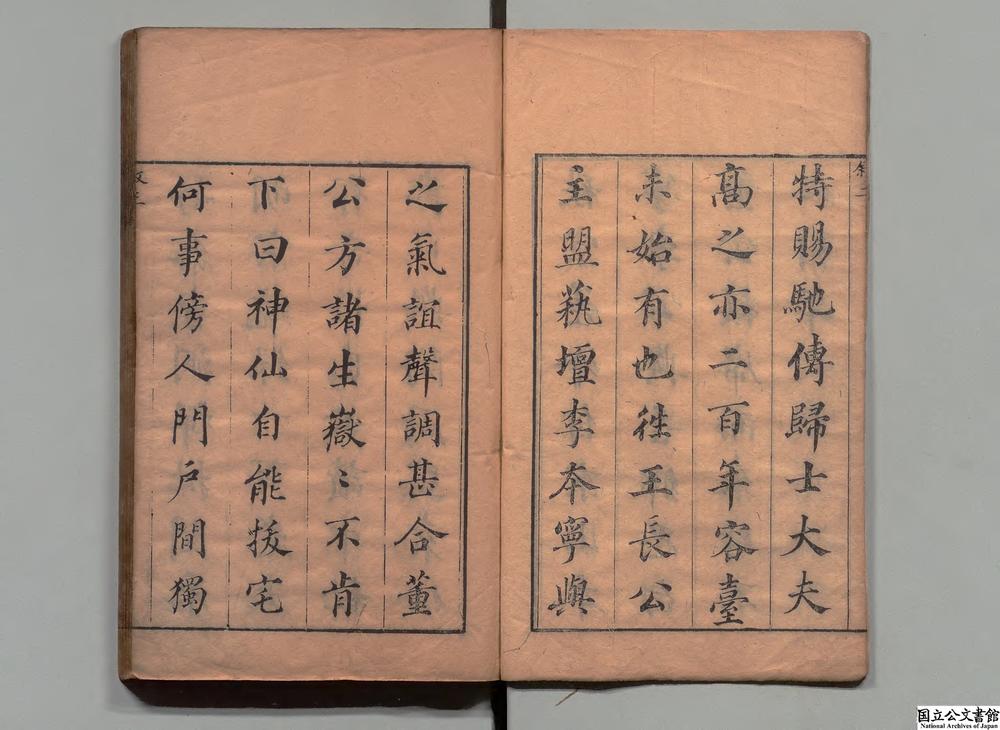 特賜馳傳歸士大夫
高之亦二百年容臺
未始有也徃王長公
主盟蓺壇李本寧與
之氣誼聲調甚合董
公方諸生嶽〻不肯
下曰神仙自能拔宅
何事傍人門戶間獨
国立公文書館
National Archives of Japan